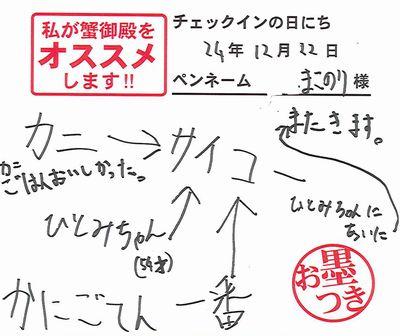 私が蟹御殿を
オススメ
します!!
チェックインの日にち
24年12月22日
ペンネーム まこのり 様
またきます。
カニ→サイコー
カニ
ごはんおいしかった。
ひとみちゃん
(54才)
ひとみちゃんに
あいに
かにごてん 一番
お墨つき